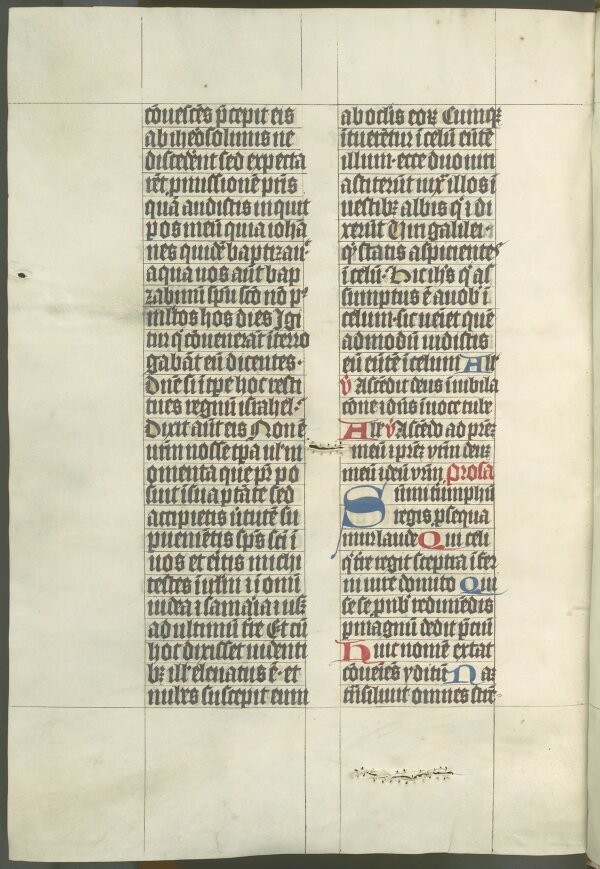 ꝯuescēs p̄cepit eis
ab iherosolimis ne
discederēt sed expecta
rēt ꝓmissionē pr̄is
quā audistis inquit
per os meū quia iohā
nes quidē baptizauͥ
aqua uos aūt bap
zabimī sp̄u sc̄o nō pꝰ
mltos hos dies Igi
tur q̇ ꝯuenerāt īterro
gabāt eū dicentes.
Dn̄e si ī tp̄e hoc resti
tues regnū israhel.
Dixit aūt eis Non ē
ur̄m nosse tp̄a ul̓ m
omenta que pr̄ po
suit ī sua ptāte sed
accipietis ūtutē su
ꝑueniētis sp̄s sc̄i ī
uos et eitis michi
testes ī irl̄m ⁊ ī omī
iudea ⁊ samaria ⁊ usꝫ
ad ultimū tr̄e Et cū
hoc dixisset uidenti
bꝫ ill̓ eleuatus ē. et
nubes suscepit eum
ab oclis eoꝝ Cumqꝫ
ītuerētur ī celū eūtē
illum. ecce duo uiri
astiterūt iux̄ illos ī
uestibꝫ albis qͥ ⁊ di
xerūt Uiri galilei.
qͥd statis aspicientes
ī celū. Hic ih̄s qͥ as
sumptus ē a uob̓ ī
celum. sic ueiet quē
admodū uidistis
eū eūtē ī celum All̓
℣ Ascēdit deus ī iubila
tōne ⁊ dn̄s ī uoce tube
All̓ ℣ Ascēdo ad prēꝫ
meū ⁊ prēꝫ ur̄m deū
meū ⁊ deū ur̄m Prosa
Summi tⁱumphū
regis ꝓsequa
mur laude Qui celi
qͥ tr̄e regit sceptra īfer
ni iure domito Qui
sese ꝓ nob̓ redimēdis
ꝑmagnū dedit p̄ciū
Huic nomē extat
ꝯueiēs ydithū Nā
tr̄nsiliuit omnes str̄e